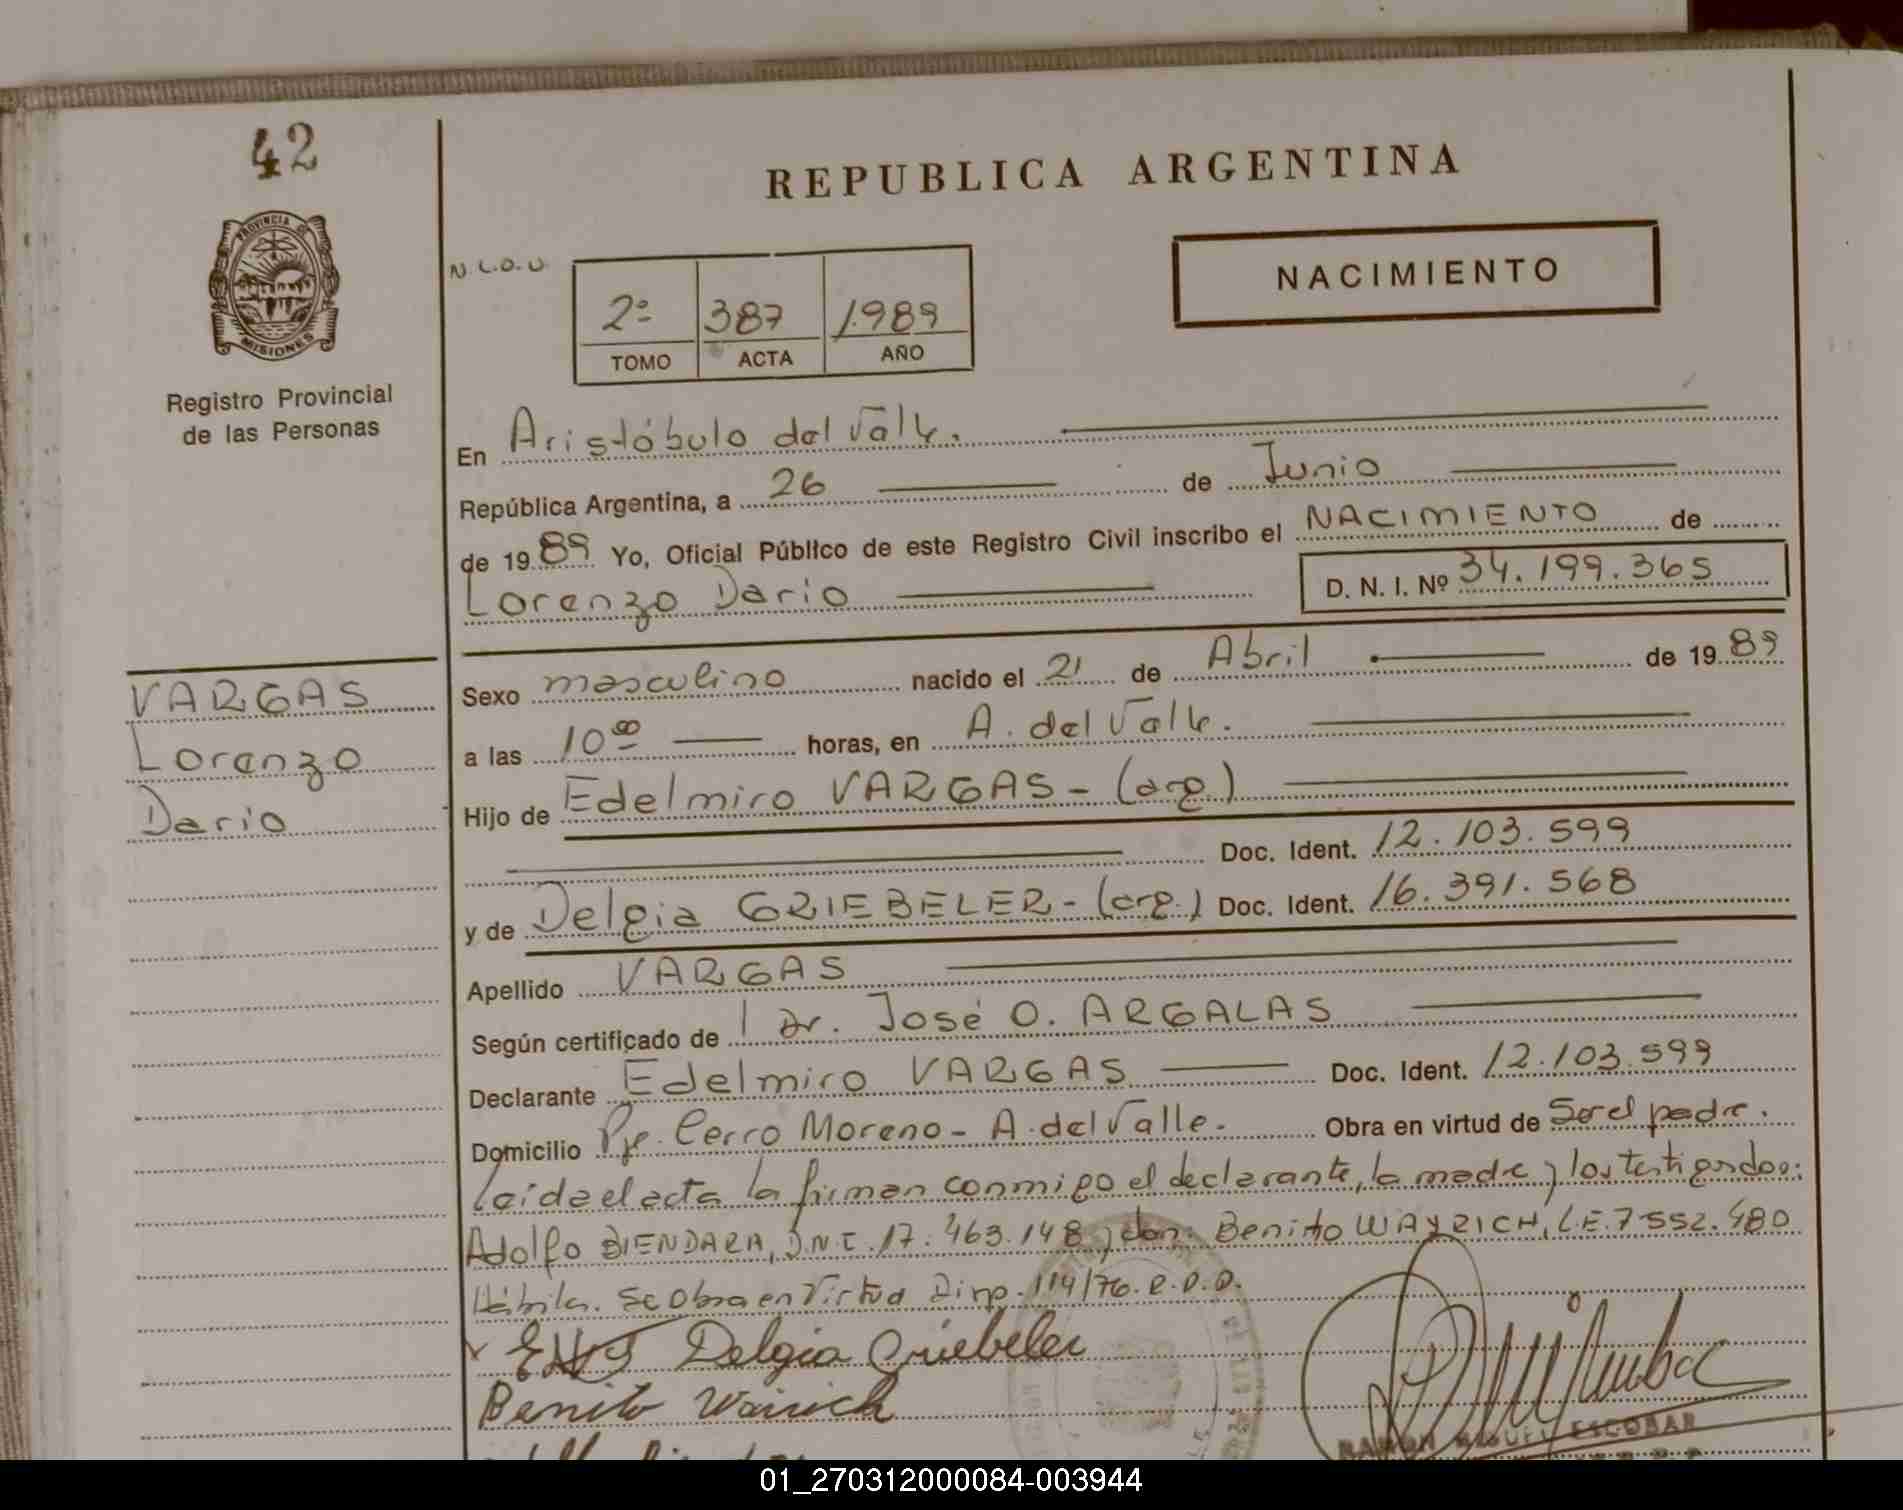 42
REPUBLICA ARGENTINA
PROVINCIA DE
MISIONES
Registro Provincial
de las Personas
N.L.O.U.
2º 387 1.989
TOMO ACTA AÑO
NACIMIENTO
En Aristóbulo del Valle.
República Argentina, a 26 de Junio
de 1989 Yo, Oficial Público de este Registro Civil inscribo el NACIMIENTO de
Lorenzo Dario D. N. I. Nº 34.199.365
VARGAS
Lorenzo
Dario
Sexo masculino nacido el 21 de Abril de 1989
a las 10 00 horas, en A. del Valle.
Hijo de Edelmiro VARGAS - (arg)
Doc. Ident. 12.103.599
y de Delgia GRIEBELER - (arg.) Doc. Ident. 16.391.568
Apellido VARGAS
Según certificado de l Dr. José O. ARGALAS
Declarante Edelmiro VARGAS Doc. Ident. 12.103.599
Domicilio Pje. Cerro Moreno - A. del Valle. Obra en virtud de Ser el padre.
Leída el acta la firman conmigo el declarante, la madre y los testigos don:
Adolfo BIENDARA, D.N.I. 17.463.148 y don: Benito WAYRICH, L.E. 7.552.480
Hábiles. Se Obra en Virtud Disp. 114/76.
Delgia Griebeler
Benito Wairich
RAMON MIGUEL ESCOBAR
01_270312000084-003944